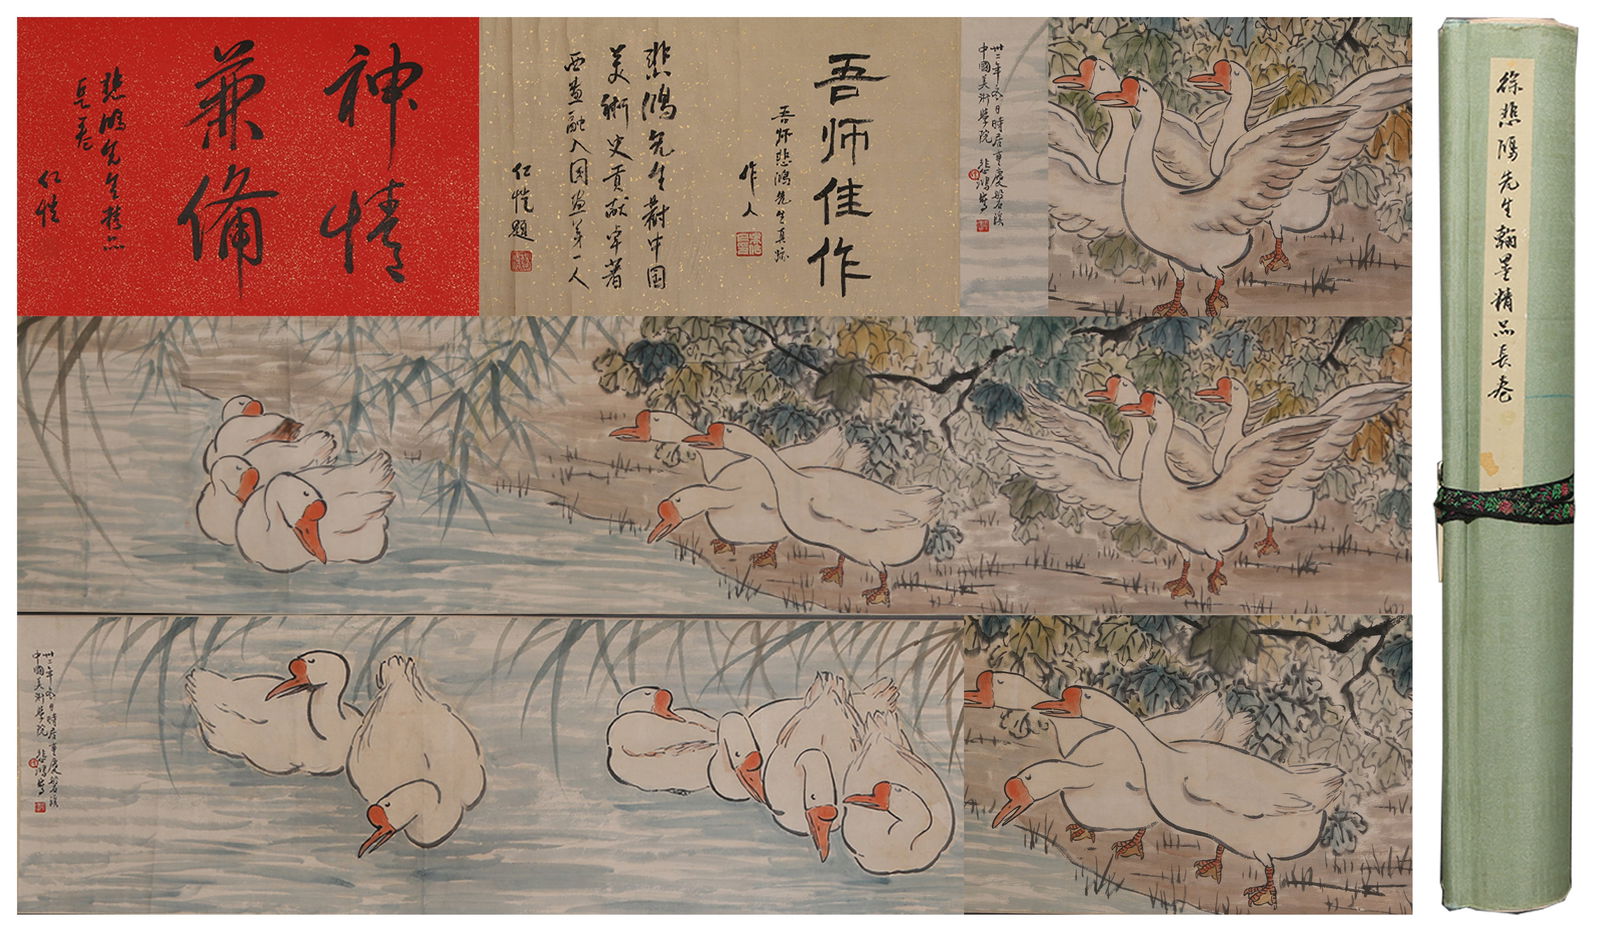 神情
兼備
悲鴻先生精品
長卷
仁愷
吾师佳作
吾师悲鴻先生真跡
作人
悲鴻先生對中国
美術史貢献卓著
西畫融入國畫第一人
仁愷題
卅二年冬日時居重慶磐溪
中國美術學院 悲鴻寫
徐悲鴻先生翰墨精品長卷
卅二年冬日時居重慶磐溪
中國美術學院 悲鴻寫